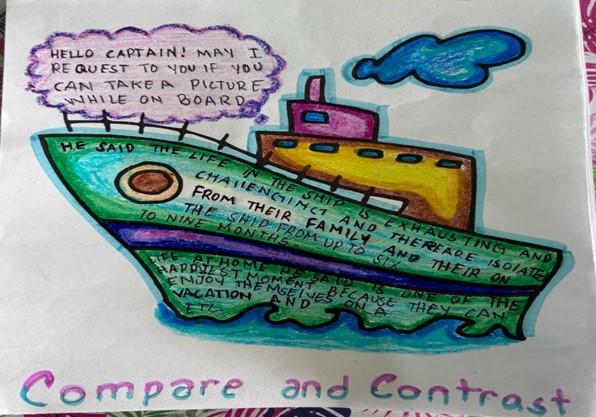 HELLO CAPTAIN! MAY I
REQUEST TO YOU IF YOU
CAN TAKE A PICTURE
WHILE ON BOARD
HE SAID THE LIFE IN THE SHIP IS EXHAUSTING AND
CHALLENGING AND THERE ARE ISOLATED
FROM THEIR FAMILY AND THEIR ON
THE SHIP FROM UP TO SIX
TO NINE MONTHS.
LIFE AT HOME HE SAID IS ONE OF THE
HAPPIEST MOMENT BECAUSE THEY CAN
ENJOY THEMSELVES ON A
VACATION AND
ETC.
Compare and Contrast